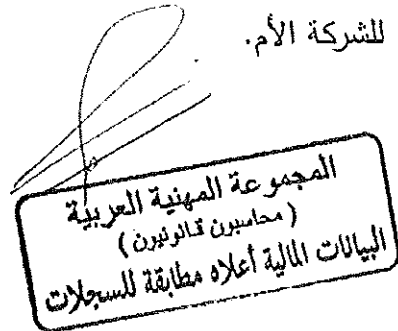 للشركة الأم.
المجموعة المهنية العربية
(محاسبون قانونيون)
البيانات المالية أعلاه مطابقة للسجلات